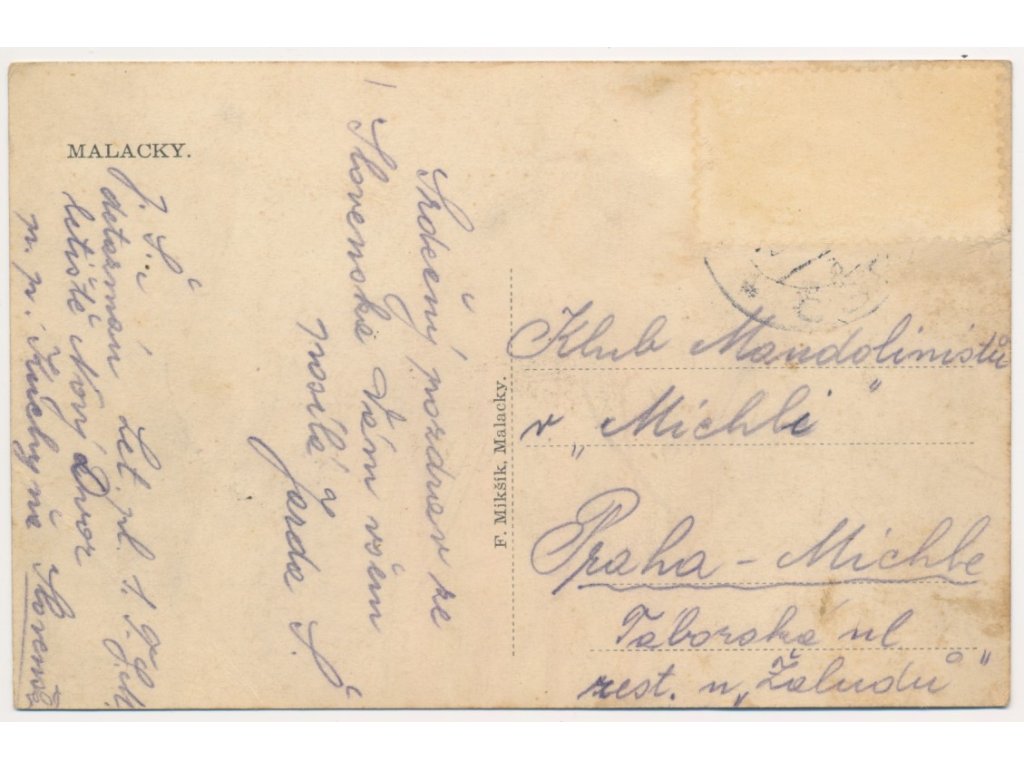 MALACKY.
Srdečný pozdrav ze
Slovenska Vám všem
posílá
Jarda Š.
J. Š.
Let. pl. 1. G. J. M.
letiště Nový Dvor
p. p. Kuchyňa
F. Mikšík, Malacky.
Klub Mandolinistů
v „Michli“
Praha – Michle
Táborská ul.
rest. u „Žaludů“